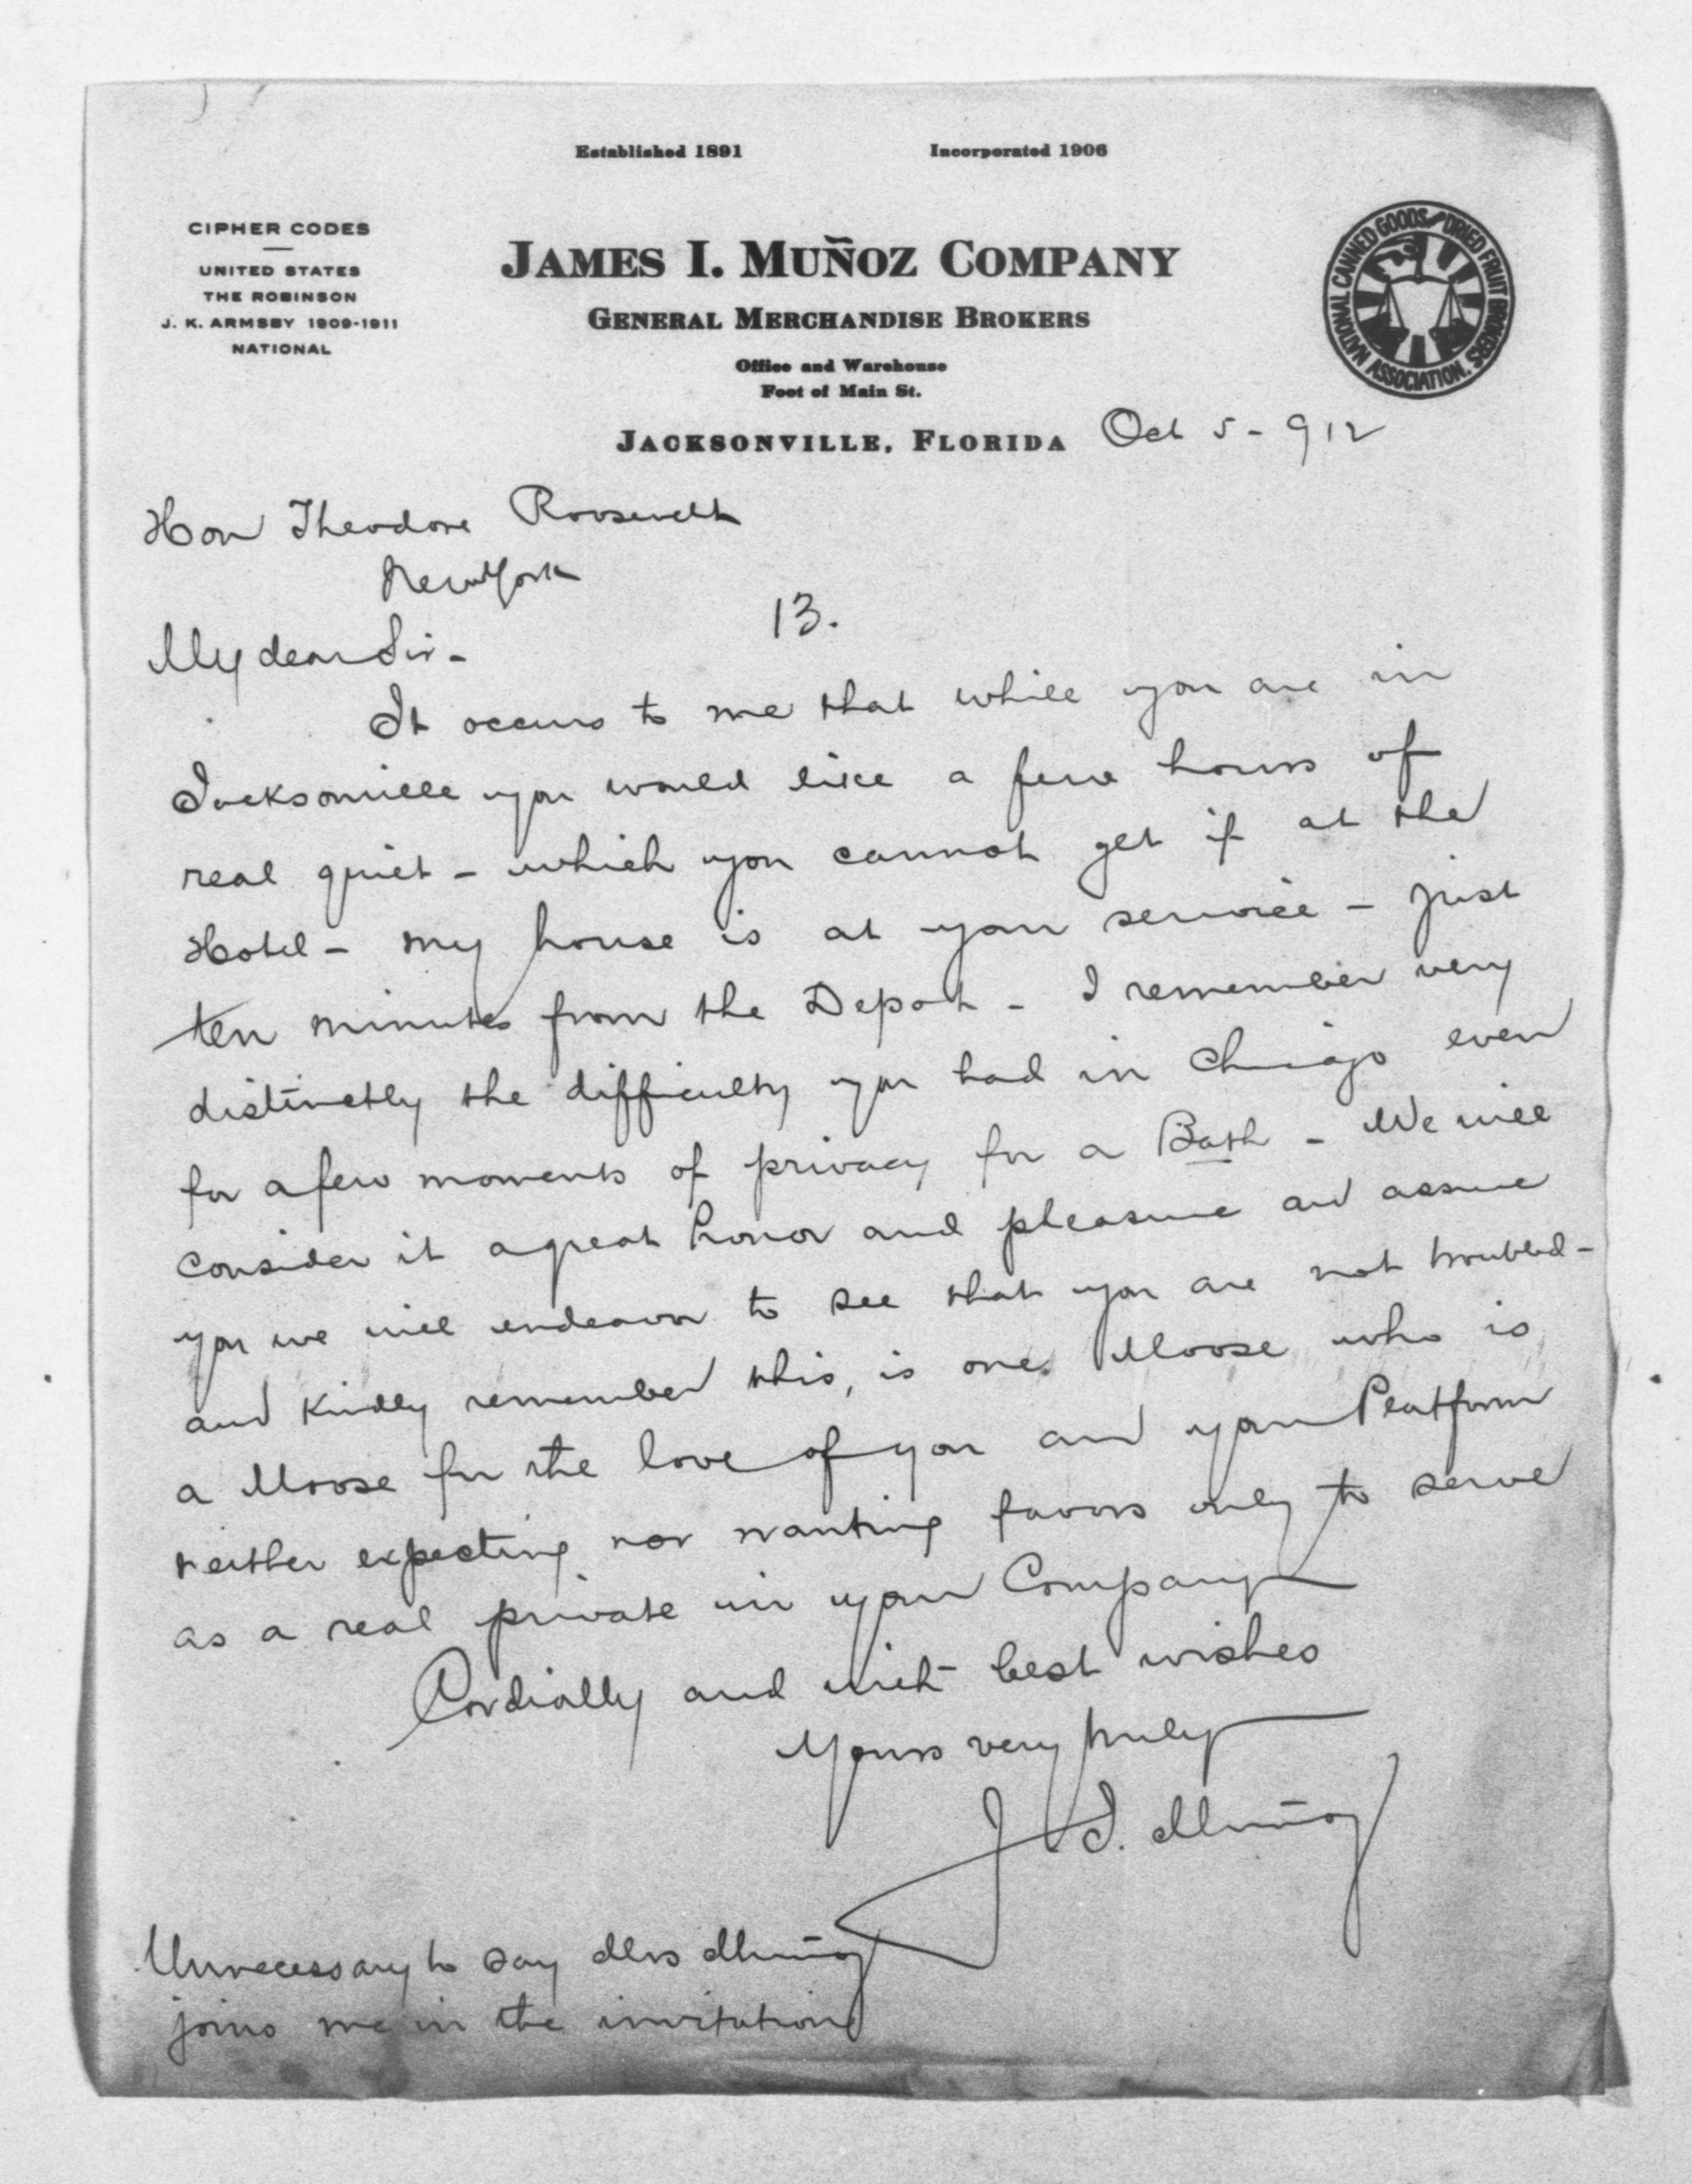 Established 1891 Incorporated 1906
CIPHER CODES
UNITED STATES
THE ROBINSON
J. K. ARMSBY 1909-1911
NATIONAL
JAMES I. MUÑOZ COMPANY
GENERAL MERCHANDISE BROKERS
Office and Warehouse
Foot of Main St.
NATIONAL CANNED GOODS AND DRIED FRUIT BROKERS ASSOCIATION.
JACKSONVILLE, FLORIDA Oct 5 - 912
Hon Theodore Roosevelt
New York
13.
My dear Sir -
It occurs to me that while you are in
Jacksonville you would like a few hours of
real quiet - which you cannot get if at the
Hotel - my house is at your service - just
ten minutes from the Depot - I remember very
distinctly the difficulty you had in Chicago even
for a few moments of privacy for a Bath - We will
consider it a great honor and pleasure and assure
you we will endeavor to see that you are not troubled -
and kindly remember this, is one Moose who is
a Moose for the love of you and your Platform
neither expecting nor wanting favors only to serve
as a real private in your Company
Cordially and with best wishes
Yours very truly
J. I. Muñoz
Unnecessary to say Mrs Muñoz
joins me in the invitation